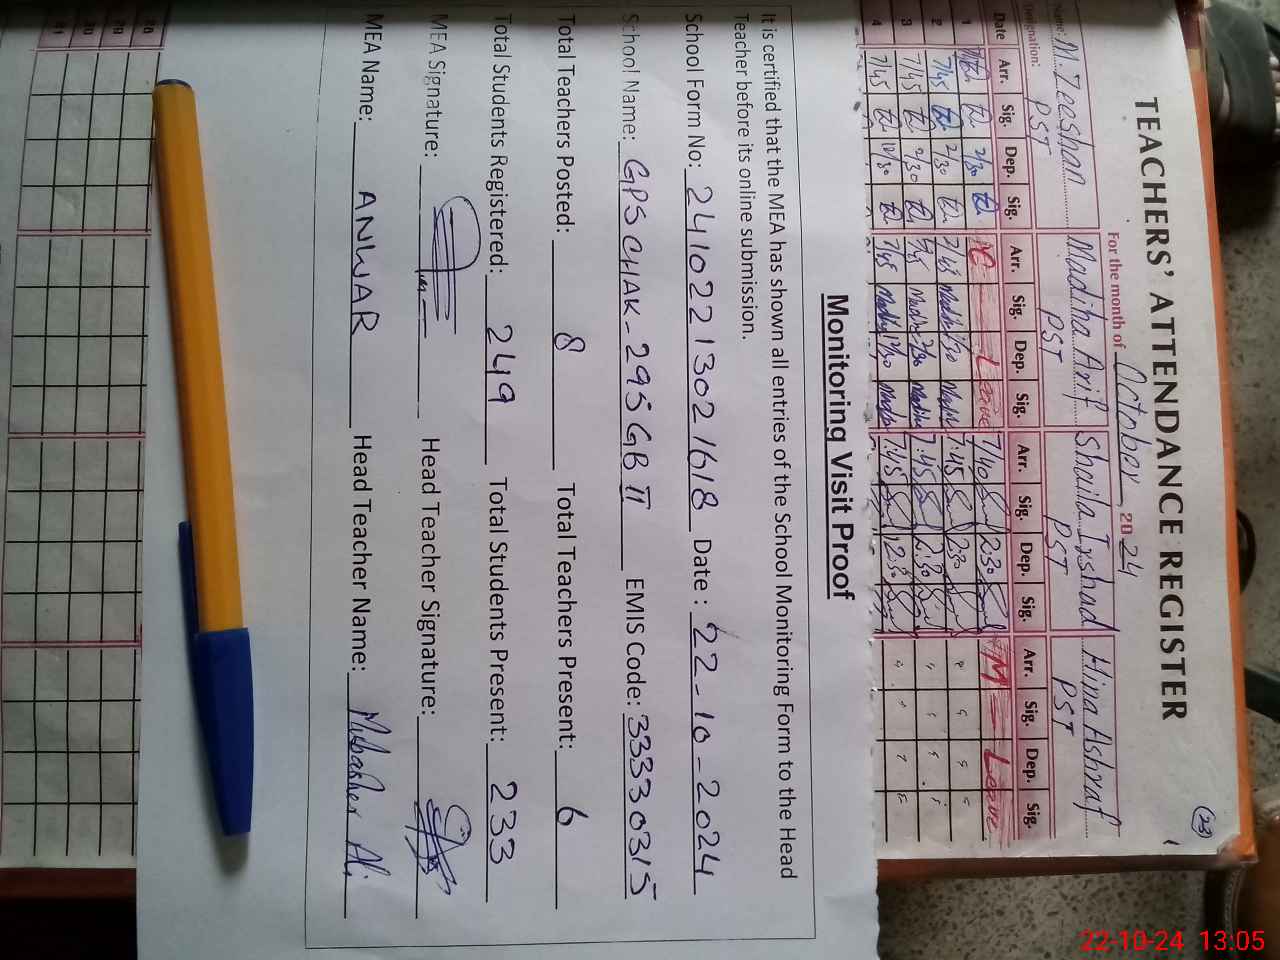 (23)
TEACHERS' ATTENDANCE REGISTER
For the month of October, 2024
Name: M. Zeeshan Madiha Arif Shaila Irshad Hina Ashraf
Designation: PST PST PST PST
Date Arr. Sig. Dep. Sig. Arr. Sig. Dep. Sig. Arr. Sig. Dep. Sig. Arr. Sig. Dep. Sig.
1 2/30 Leave 7/40 2:30 M Leave
2 7/45 2/30 7/45 2/30 7:45 2:30
3 7/45 2/30 7/45 2/30 7:45 2:30
4 7/45 12/30 7/45 12/30 7:45 12:30
Monitoring Visit Proof
It is certified that the MEA has shown all entries of the School Monitoring Form to the Head
Teacher before its online submission.
School Form No: 24102213021618 Date: 22-10-2024
School Name: GPS CHAK-295 GB II EMIS Code: 33330315
Total Teachers Posted: 8 Total Teachers Present: 6
Total Students Registered: 249 Total Students Present: 233
MEA Signature: Head Teacher Signature:
MEA Name: ANWAR Head Teacher Name: Mubasher Ali
28
29
30
31
22-10-24 13:05